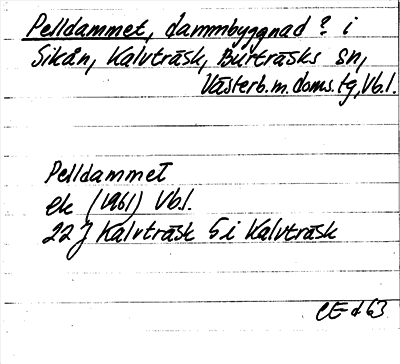 Pelldammet, dammbyggnad ? i
Sikån, Kalvträsk, Burträsks sn,
Västerb.m.doms.tg, Vb.l.
Pelldammet
ek (1961) Vb.l.
22 J Kalvträsk 5 i Kalvträsk
CE d 63